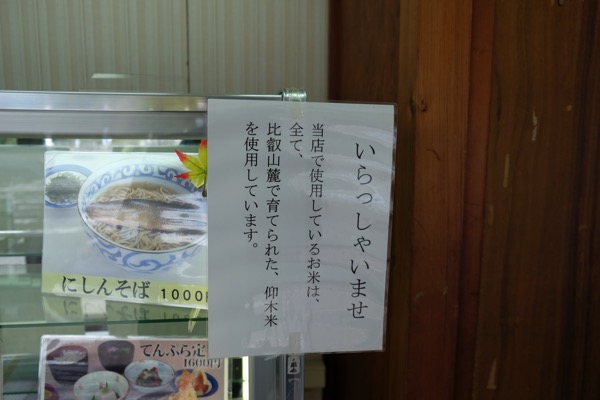 いらっしゃいませ
当店で使用しているお米は、
全て、
比叡山麓で育てられた、仰木米
を使用しています。
にしんそば 1000
てんぷら定
1600円